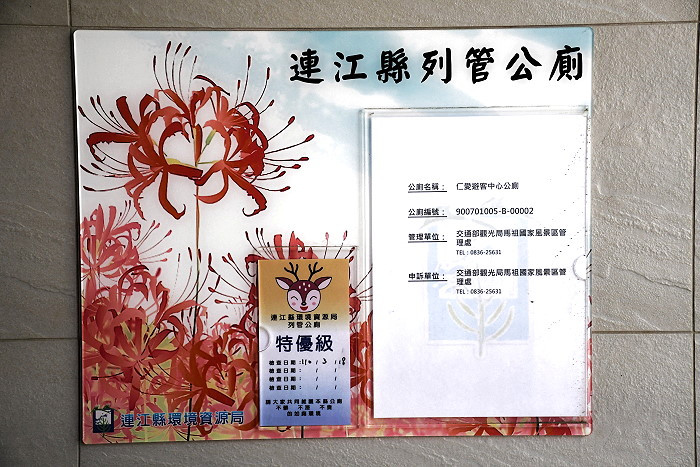 連江縣列管公廁
公廁名稱： 仁愛遊客中心公廁
公廁編號： 900701005-B-00002
管理單位： 交通部觀光局馬祖國家風景區管
理處
TEL：0836-25631
申訴單位： 交通部觀光局馬祖國家風景區管
理處
TEL：0836-25631
連江縣環境資源局
列管公廁
特優級
檢查日期：110 / 3 / 18
檢查日期： / /
檢查日期： / /
檢查日期： / /
請大家共同維護本縣公廁
不髒 不濕 不臭
連江縣環境資源局